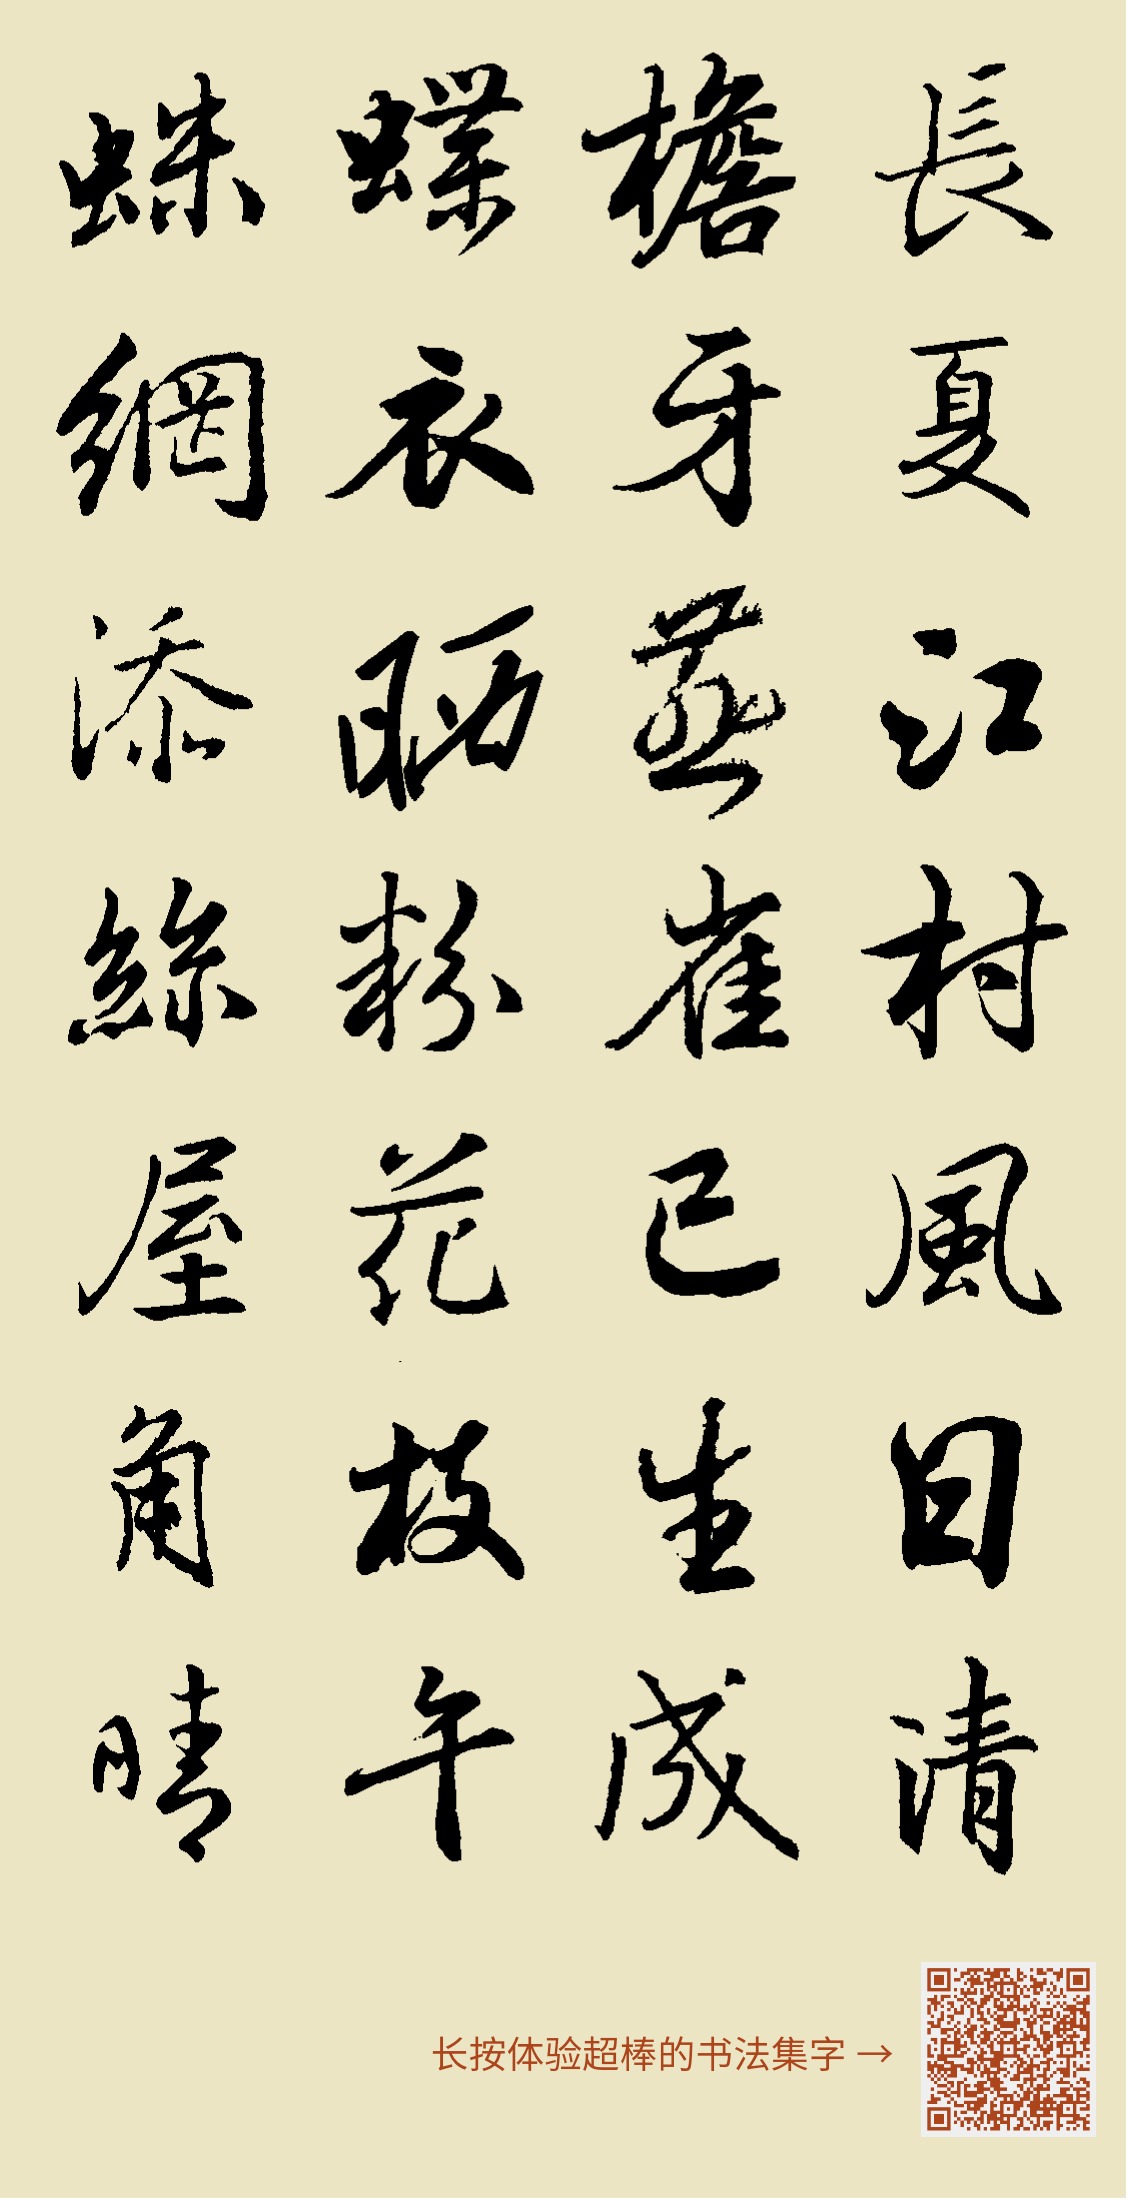 長夏江村風日清
檐牙燕雀已生成
蝶衣晒粉花枝午
蛛網添絲屋角晴
长按体验超棒的书法集字 →